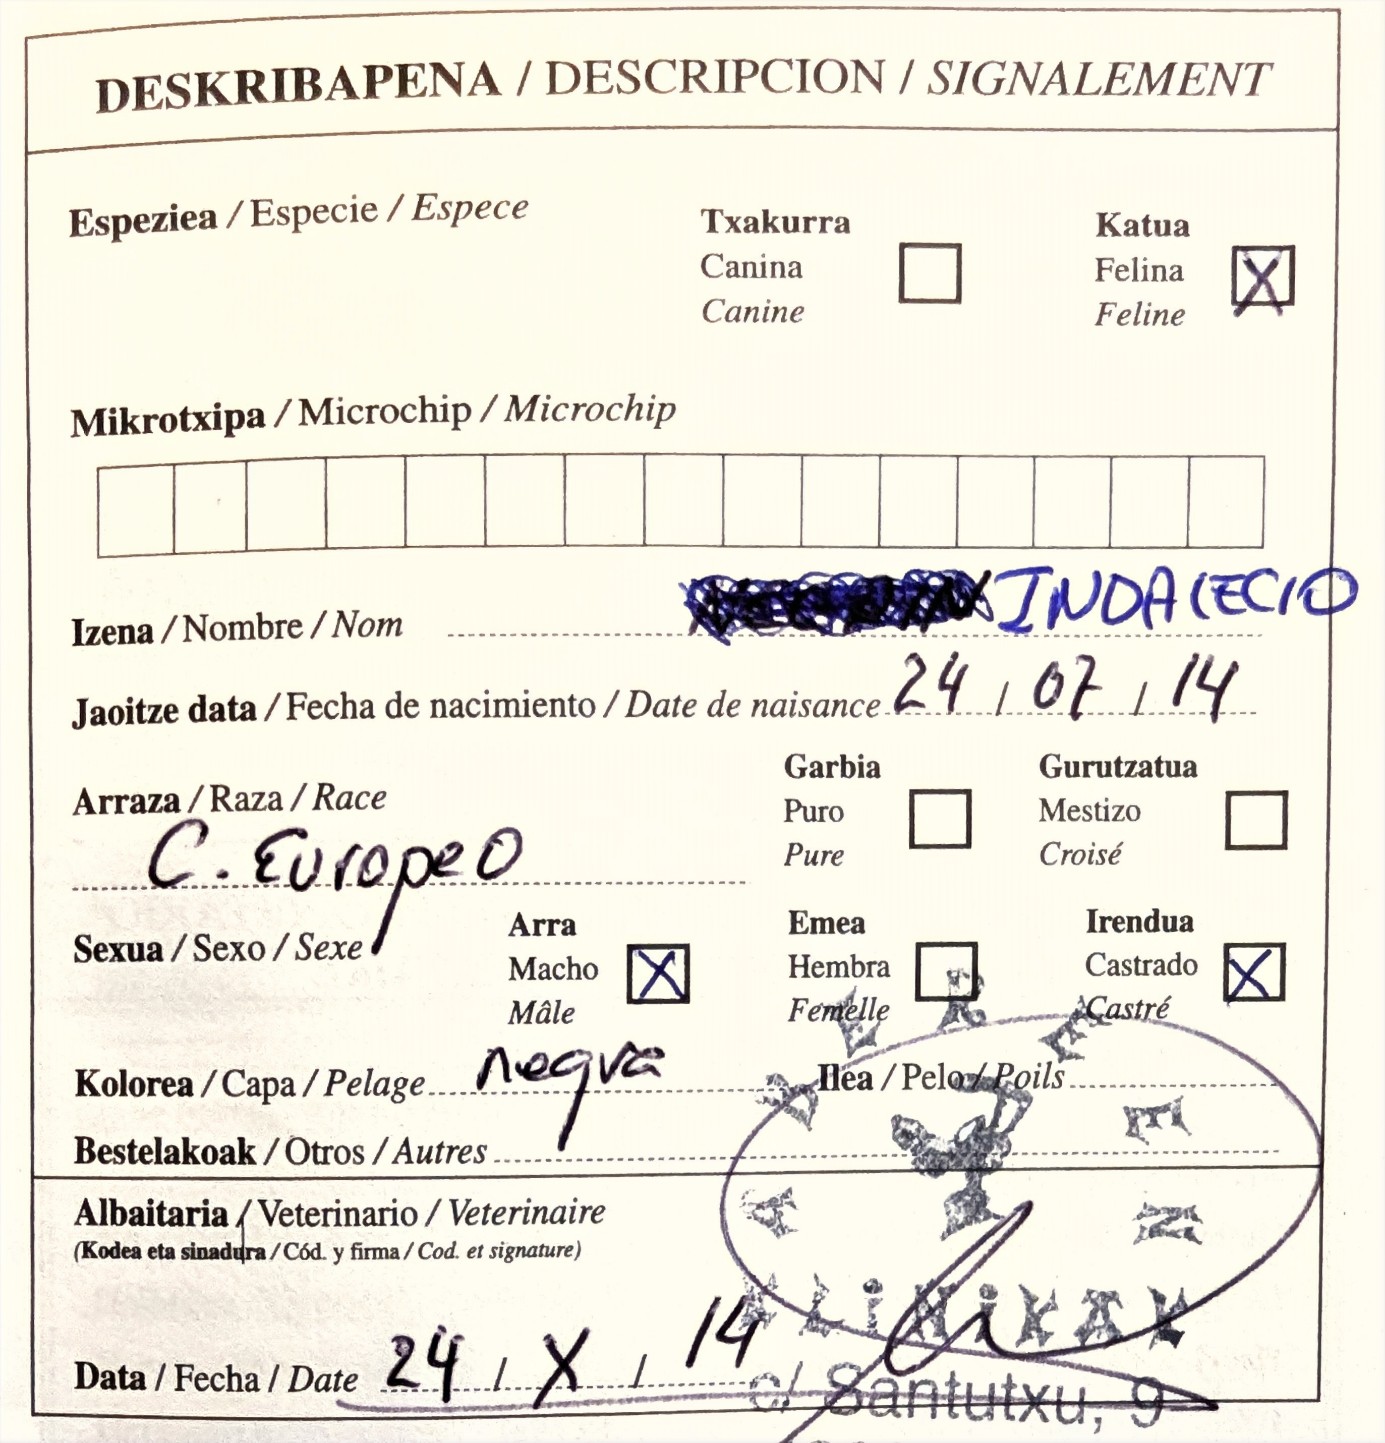 DESKRIBAPENA / DESCRIPCION / SIGNALEMENT
Espeziea / Especie / Espece
Txakurra
Canina
Canine
Katua
Felina
Feline
X
Mikrotxipa / Microchip / Microchip
Izena / Nombre / Nom INDALECIO
Jaoitze data / Fecha de nacimiento / Date de naisance 24 / 07 / 14
Arraza / Raza / Race
C. Europeo
Garbia
Puro
Pure
Gurutzatua
Mestizo
Croisé
Sexua / Sexo / Sexe
Arra
Macho
Mâle
X
Emea
Hembra
Femelle
Irendua
Castrado
Castré
X
Kolorea / Capa / Pelage negra
Ilea / Pelo / Poils
Bestelakoak / Otros / Autres
Albaitaria / Veterinario / Veterinaire
(Kodea eta sinadura / Cód. y firma / Cod. et signature)
KLiNiKAK
Data / Fecha / Date 24 / X / 14
c/ Santutxu, 9